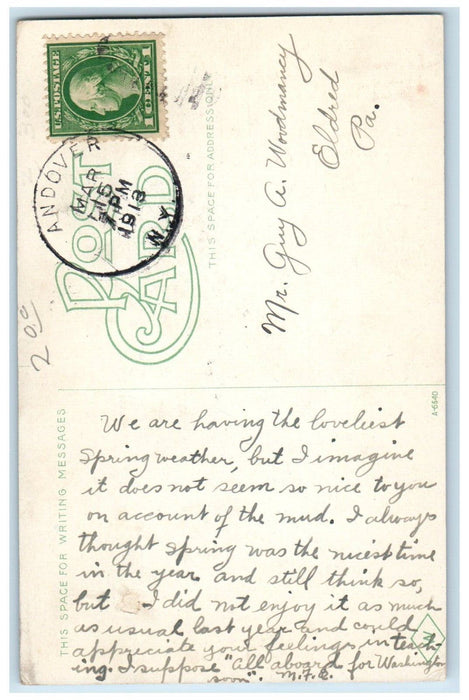 U.S. POSTAGE
1 CENT 1
ANDOVER
MAR
15
PM
1913
N.Y.
POST
CARD
THIS SPACE FOR ADDRESS ONLY
Mr. Guy A. Woodmancy
Eldred
Pa.
2 00
A-6640
THIS SPACE FOR WRITING MESSAGES
We are having the loveliest
Spring weather, but I imagine
it does not seem so nice to you
on account of the mud. I always
thought Spring was the nicest time
in the year and still think so,
but I did not enjoy it as much
as usual last year and could
appreciate your feelings in teach-
ing. I suppose "All aboard for Washington
soon".